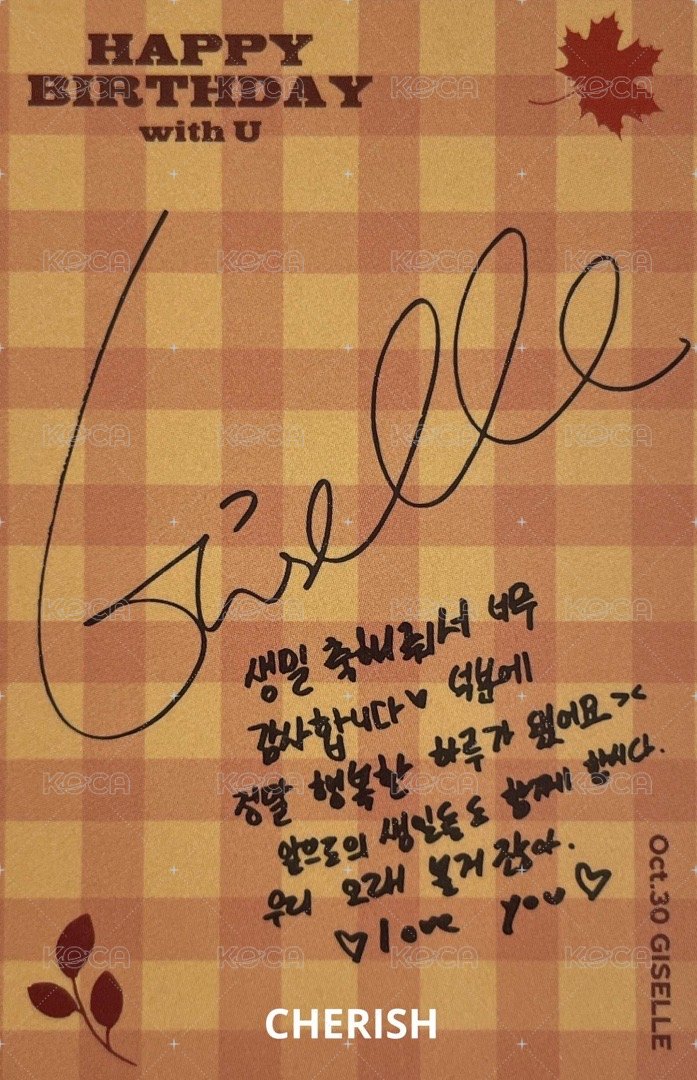 HAPPY
BIRTHDAY
with U
Giselle
생일 축하해줘서 너무
감사합니다♥ 덕분에
정말 행복한 하루가 됐어요><
앞으로의 생일들도 함께 합시다.
우리 오래 볼거잖아.
♡ love you ♡
Oct.30 GISELLE
CHERISH
KOCA